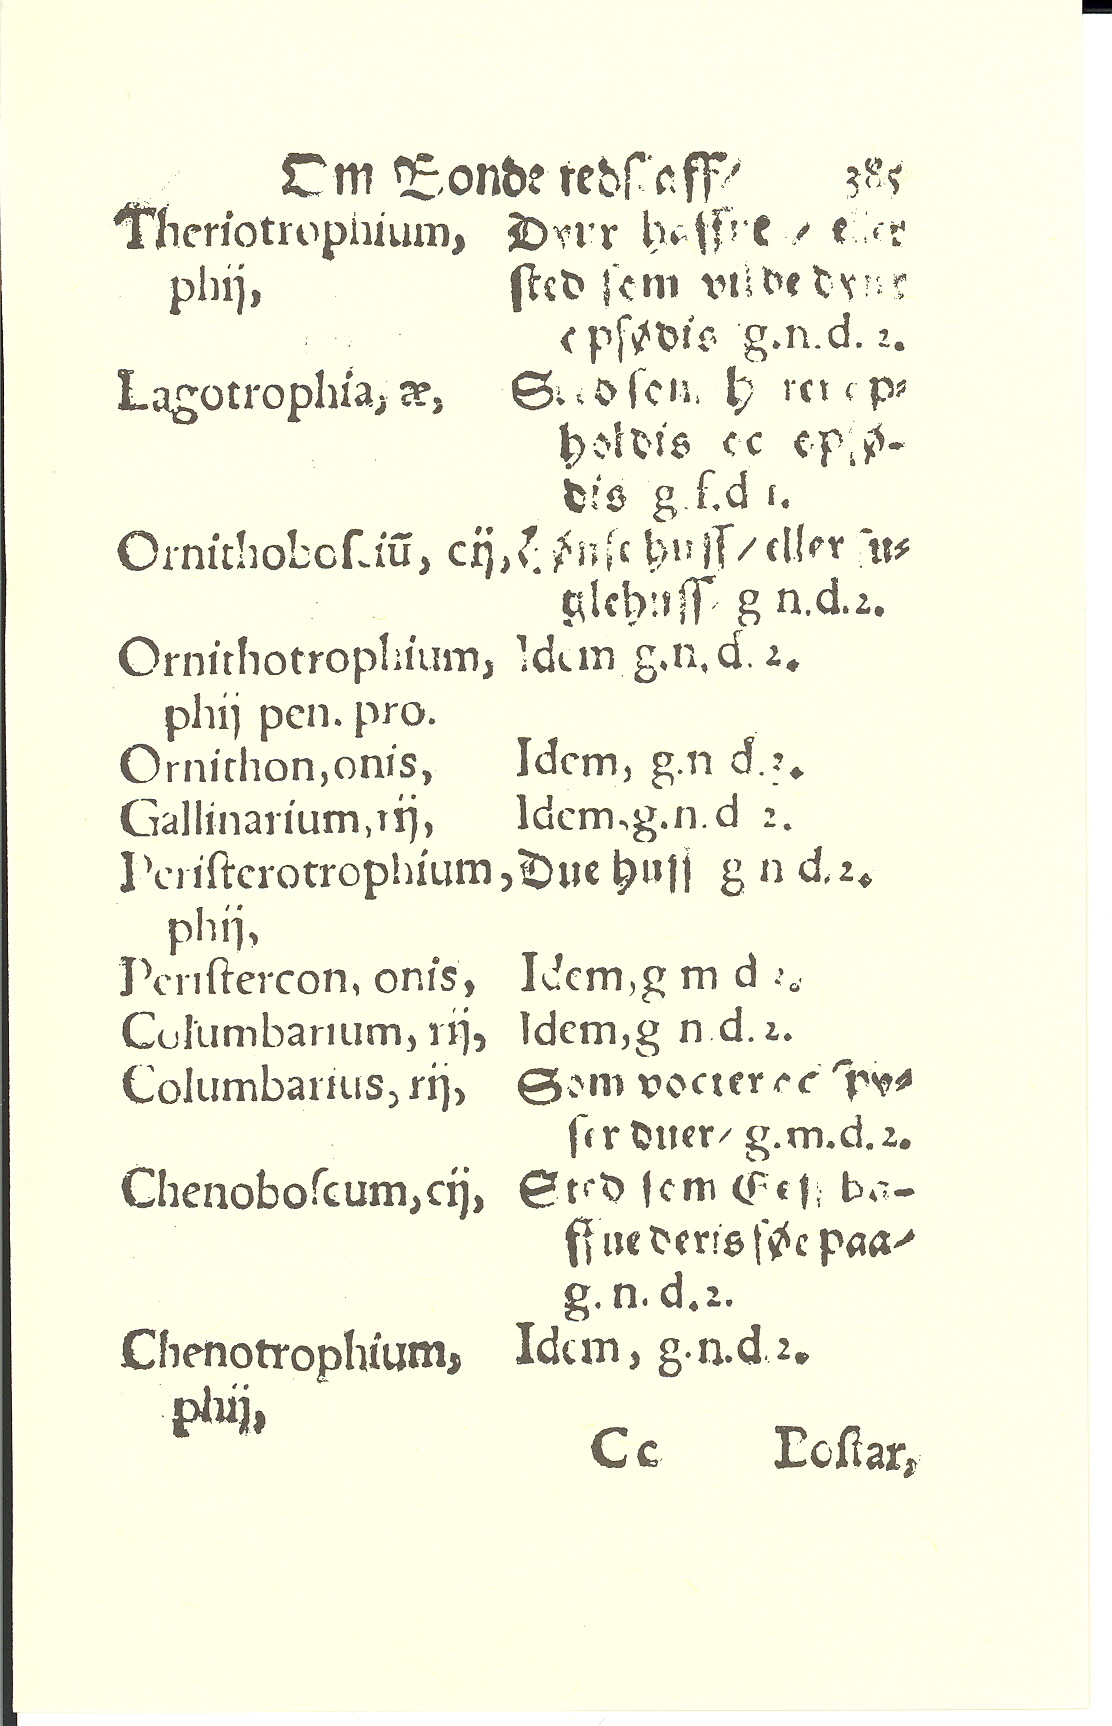 Om Bonde redskaff/ 385
Theriotrophium, Dyur haffue / eller
phij, sted som vilde dyur
opfødis g.n.d. 2.
Lagotrophia, æ, Sted som h rer op⸗
holdis oc opfø-
dis g f.d 1.
Ornithoboſciū, cij, Hønse huſſ / eller fu⸗
glehuſſ/ g n.d.2.
Ornithotrophium, Idem g.n.d. 2.
phij pen. pro.
Ornithon, onis, Idem, g.n d.2.
Gallinarium, rij, Idem, g.n.d 2.
Periſterotrophium, Due huſſ g n d.2.
phij,
Periſtereon, onis, Idem, g m d 2.
Columbarium, rij, Idem, g n.d.2.
Columbarius, rij, Som vocter oc spy⸗
ſer duer/ g.m.d.2.
Chenoboſcum, cij, Sted ſom Geſſ ha-
ffue deris føe paa/
g.n.d.2.
Chenotrophium, Idem, g.n.d.2.
phij,
Cc Loſtar,